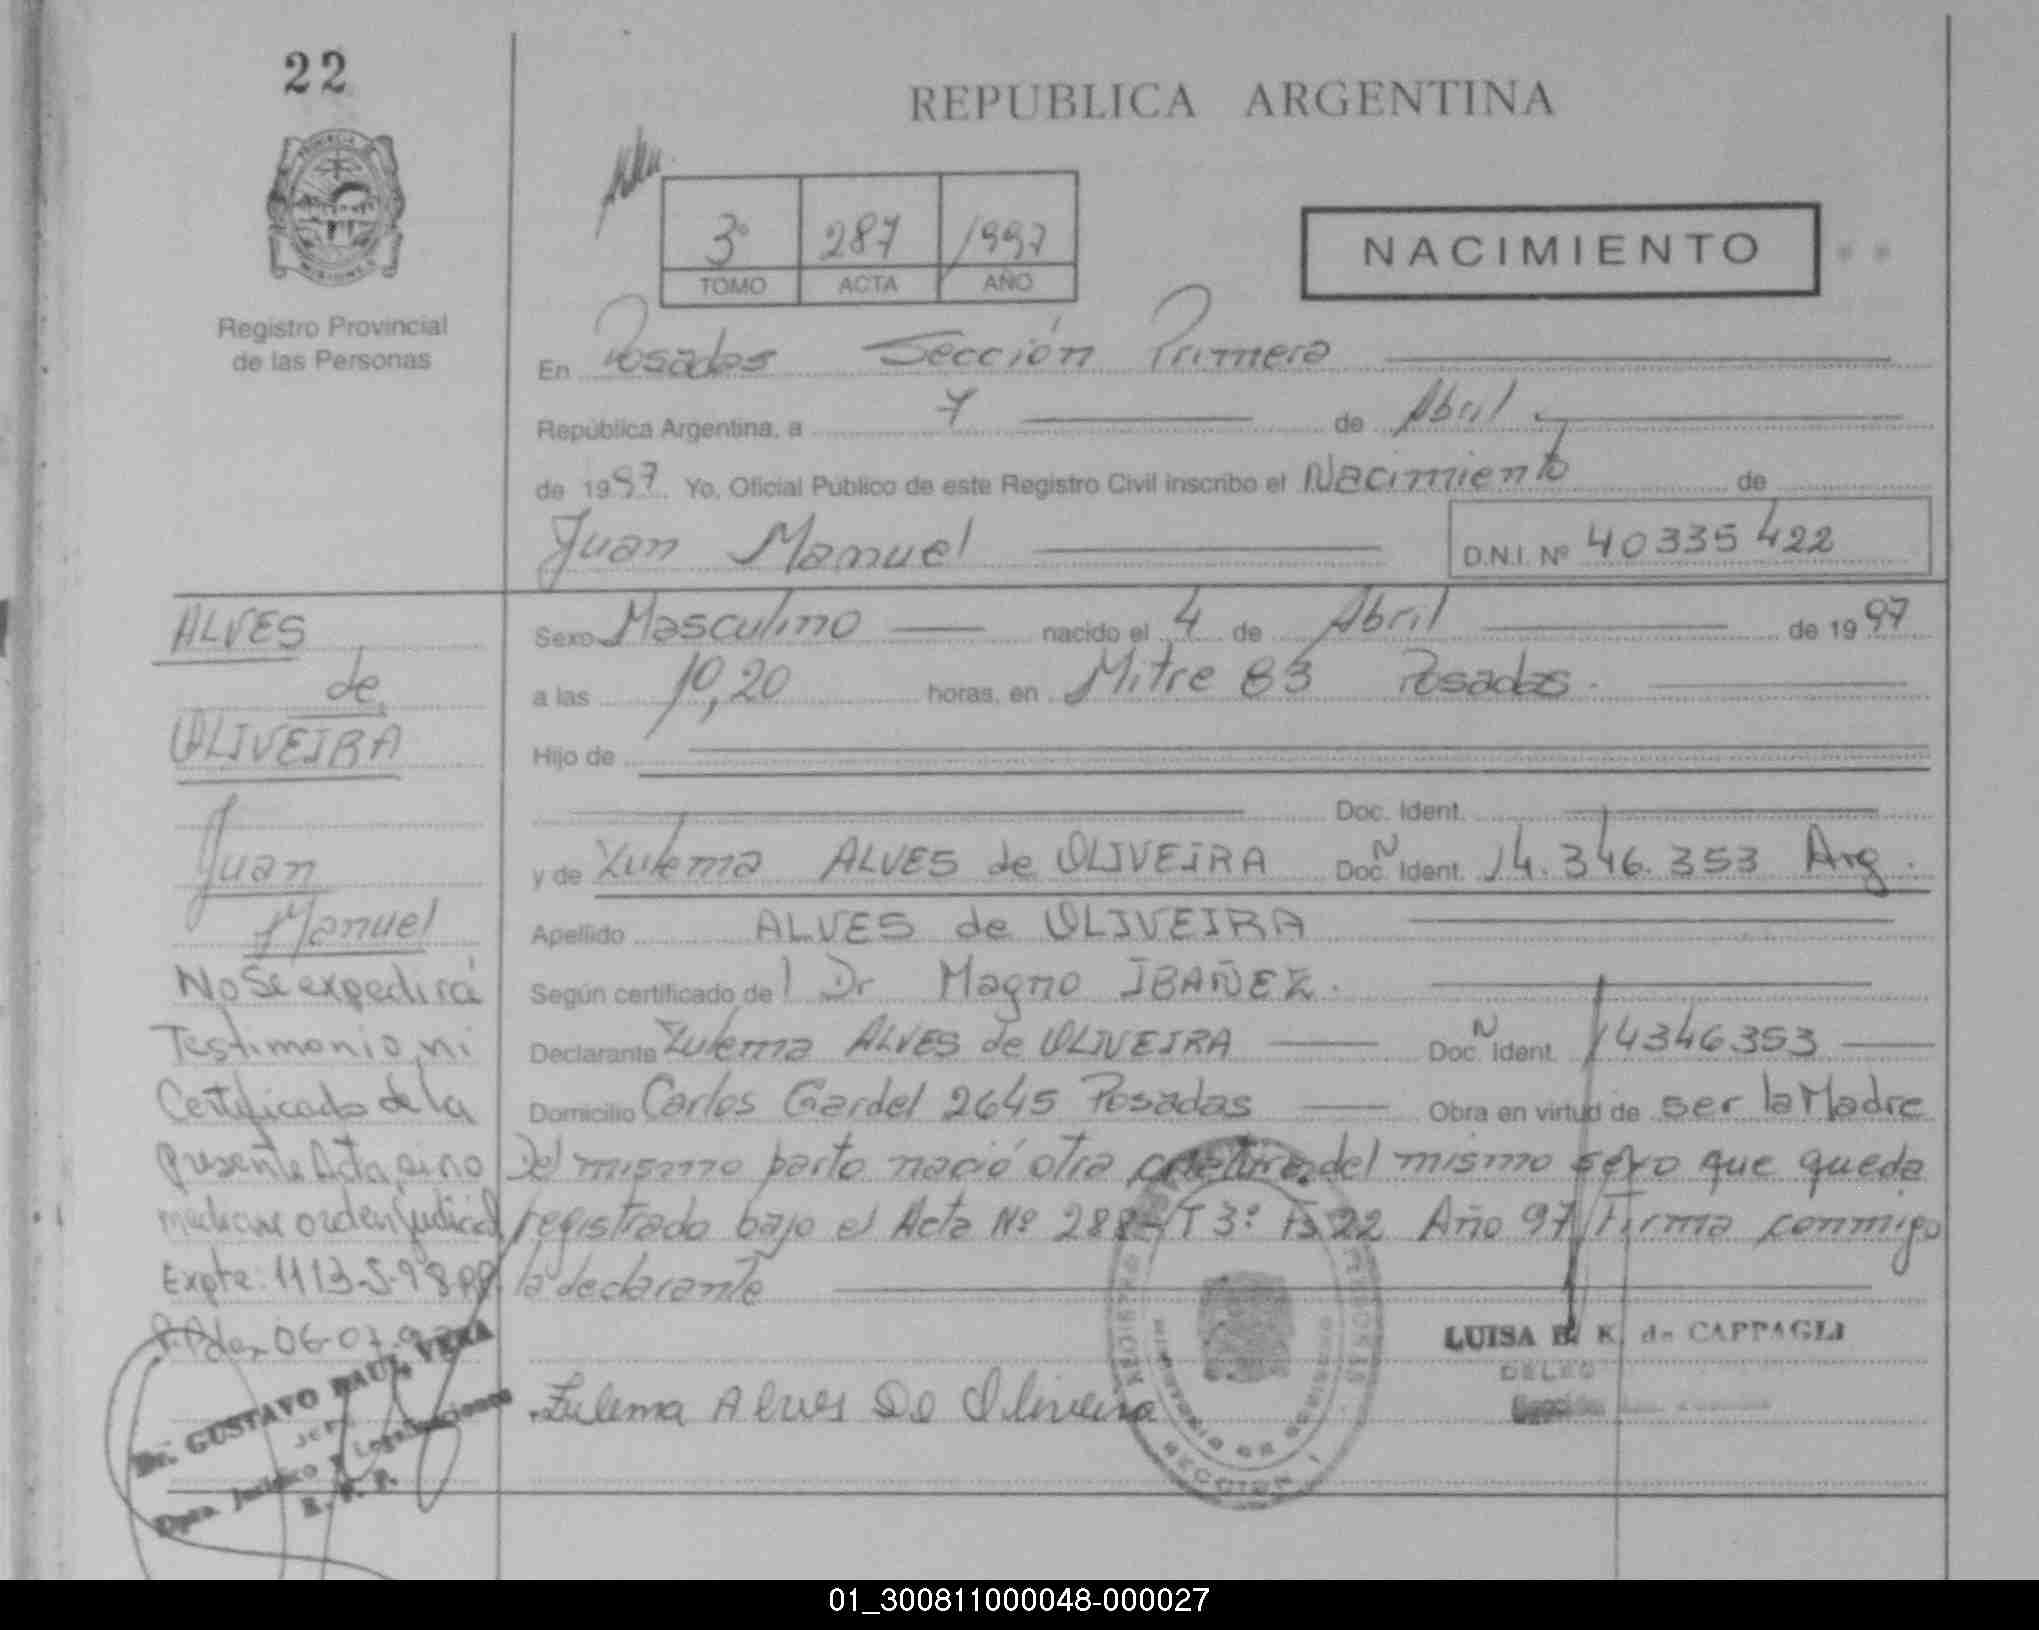 22
REPUBLICA ARGENTINA
3° 287 1997
TOMO ACTA AÑO
NACIMIENTO
Registro Provincial
de las Personas
En Posadas Sección Primera
República Argentina, a 7 de Abril
de 1997 Yo, Oficial Público de este Registro Civil inscribo el Nacimiento de
Juan Manuel
D.N.I. Nº 40335422
ALVES
de
OLIVEIRA
Juan
Manuel
No Se expedirá
Testimonio, ni
Certificado de la
presente Acta, sino
mediante orden judicial
Expte: 1113-S-98
06-07
Dr. GUSTAVO RAUL VERA
Dpto. Jurídico y Legalizaciones
R. P. P.
Sexo Masculino nacido el 4 de Abril de 1997
a las 10,20 horas, en Mitre 83 Posadas.
Hijo de
Doc. Ident.
y de Zulema ALVES de OLIVEIRA Doc. N Ident. 14.346.353 Arg.
Apellido ALVES de OLIVEIRA
Según certificado del Dr Magno IBAÑEZ.
Declarante Zulema ALVES de OLIVEIRA Doc. N Ident. 14346353
Domicilio Carlos Gardel 2645 Posadas Obra en virtud de ser la Madre
Del mismo parto nació otra criatura del mismo sexo que queda
registrado bajo el Acta Nº 288-T 3º Fs 22 Año 97 Firma conmigo
la declarante
LUISA E. K. de CAPPAGLI
DELEG
Zulema Alves De Oliveira
SECCION 1
01_300811000048-000027